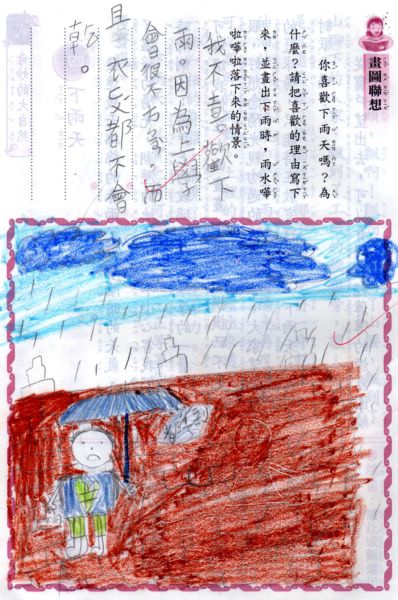 畫圖聯想
你喜歡下雨天嗎?為
什麼?請把喜歡的理由寫下
來,並畫出下雨時,雨水嘩
啦嘩啦落下來的情景。
我不喜歡下
雨。因為上學
會很不方便而
且衣服都不會
乾。